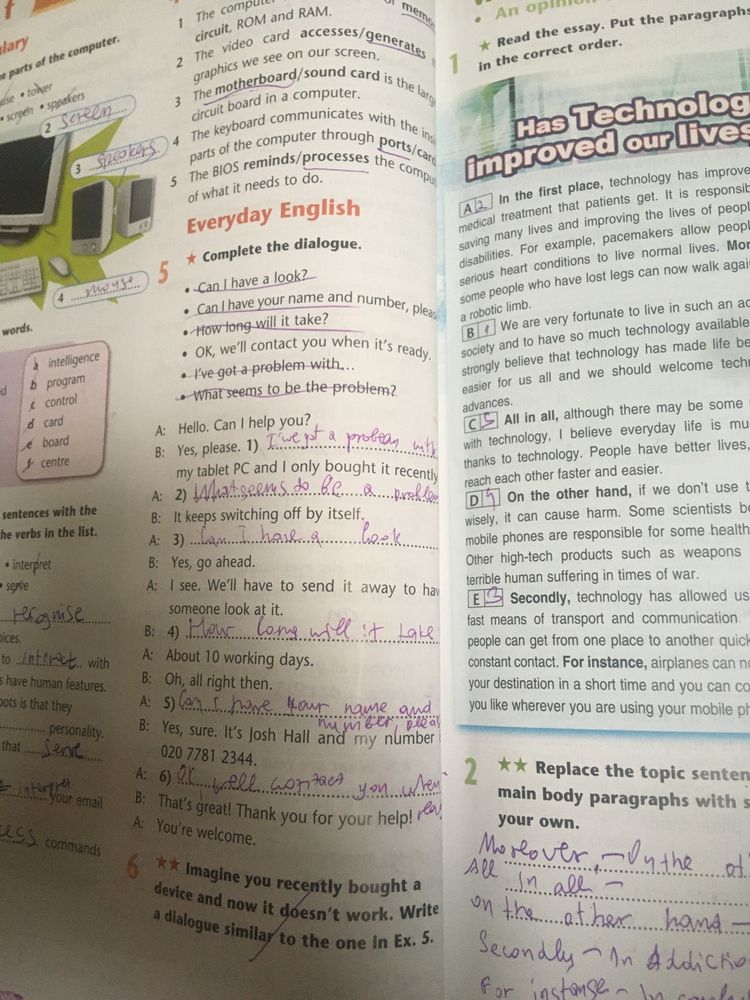 lary
e parts of the computer.
use • tower
• screen • speakers
2 screen
3 speakers
4 mouse
words.
a intelligence
b program
c control
d card
e board
f centre
sentences with the
he verbs in the list.
• interpret
• serve
recognise
oices.
to interact with
s have human features.
bots is that they
personality.
that serve
interpret
your email
commands
1 The compu
circuit, ROM and RAM.
2 The video card accesses/generates
graphics we see on our screen.
3 The motherboard/sound card is the larg
circuit board in a computer.
4 The keyboard communicates with the ins
parts of the computer through ports/card
5 The BIOS reminds/processes the compu
of what it needs to do.
Everyday English
5 ★ Complete the dialogue.
• Can I have a look?
• Can I have your name and number, pleas
• How long will it take?
• OK, we'll contact you when it's ready.
• I've got a problem with...
• What seems to be the problem?
A: Hello. Can I help you?
B: Yes, please. 1) I've got a problem with
my tablet PC and I only bought it recently
A: 2) What seems to be a problem
B: It keeps switching off by itself.
A: 3) Can I have a look
B: Yes, go ahead.
A: I see. We'll have to send it away to hav
someone look at it.
B: 4) How long will it take
A: About 10 working days.
B: Oh, all right then.
A: 5) Can I have your name and
number, pleas
B: Yes, sure. It's Josh Hall and my number
020 7781 2344.
A: 6) OK well contact you when
B: That's great! Thank you for your help!
A: You're welcome.
6 ★★ Imagine you recently bought a
device and now it doesn't work. Write
a dialogue similar to the one in Ex. 5.
• An opinion
1 ★ Read the essay. Put the paragraphs
in the correct order.
Has Technolog
improved our lives
A 2 In the first place, technology has improve
medical treatment that patients get. It is responsib
saving many lives and improving the lives of peopl
disabilities. For example, pacemakers allow peopl
serious heart conditions to live normal lives. Mor
some people who have lost legs can now walk agai
a robotic limb.
B 1 We are very fortunate to live in such an ad
society and to have so much technology available
strongly believe that technology has made life be
easier for us all and we should welcome techn
advances.
C 5 All in all, although there may be some
with technology, I believe everyday life is mu
thanks to technology. People have better lives,
reach each other faster and easier.
D 4 On the other hand, if we don't use t
wisely, it can cause harm. Some scientists be
mobile phones are responsible for some health
Other high-tech products such as weapons
terrible human suffering in times of war.
E 3 Secondly, technology has allowed us
fast means of transport and communication
people can get from one place to another quick
constant contact. For instance, airplanes can no
your destination in a short time and you can co
you like wherever you are using your mobile ph
2 ★★ Replace the topic senten
main body paragraphs with s
your own.
Moreover, – In the ot
All in all –
on the other hand –
Secondly – In Addictio
For instanse –